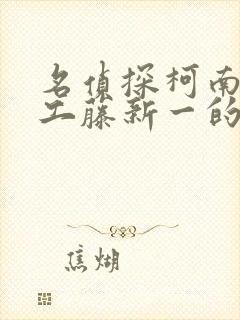 名侦探柯南
工藤新一的
焦煳